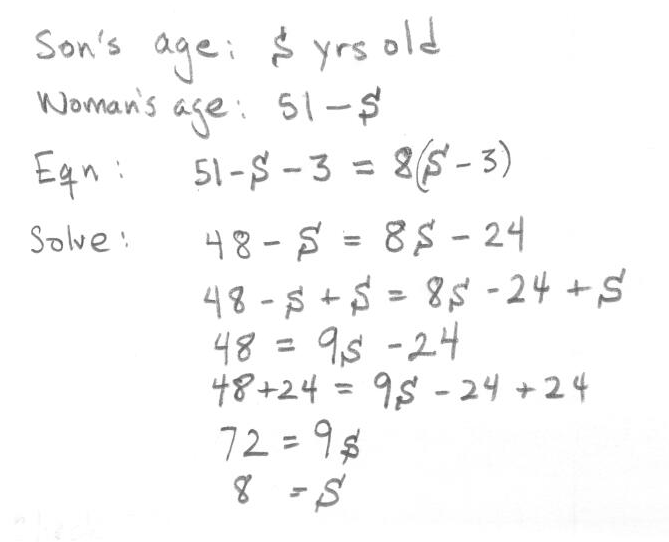 Son's age: S yrs old
Woman's age: 51 - S
Eqn: 51 - S - 3 = 8(S - 3)
Solve: 48 - S = 8S - 24
48 - S + S = 8S - 24 + S
48 = 9S - 24
48 + 24 = 9S - 24 + 24
72 = 9S
8 = S